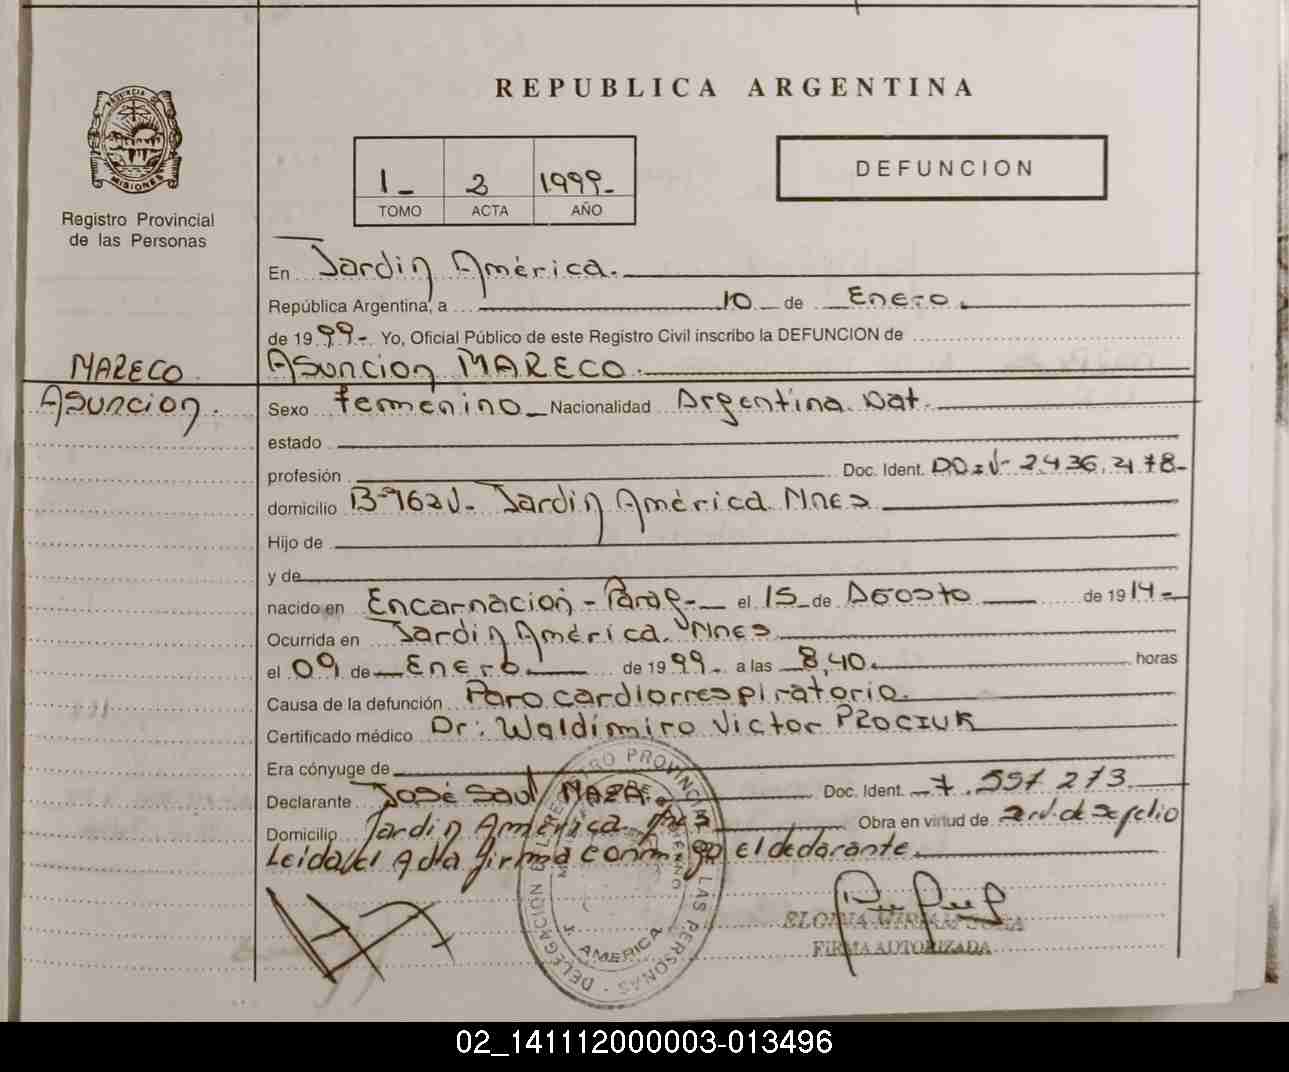 PROVINCIA DE
MISIONES
Registro Provincial
de las Personas
REPUBLICA ARGENTINA
1_ 2 1999_
TOMO ACTA AÑO
DEFUNCION
En Jardin América.
República Argentina, a 10 de Enero.
de 1999- Yo, Oficial Público de este Registro Civil inscribo la DEFUNCION de
MARECO
Asuncion.
Asuncion MARECO.
Sexo femenino_ Nacionalidad Argentina Nat.
estado
profesión Doc. Ident.
domicilio Jardin América Mnes
Hijo de
y de
nacido en Encarnación - Parag- el 15 de Agosto de 1914-
Ocurrida en Jardin América Mnes
el 09 de Enero de 1999 a las 8,40. horas
Causa de la defunción Paro cardiorrespiratorio.
Certificado médico Dr: Waldimiro Victor PROCIUK
Era cónyuge de
Declarante José Saul Doc. Ident. 7.557.273.
Domicilio Jardin América Mnes Obra en virtud de serv. de sepelio
Leida el Acta firma conmigo el declarante
DELEGACIÓN DEL REGISTRO PROVINCIAL DE LAS PERSONAS
J. AMERICA
FIRMA AUTORIZADA
02_141112000003-013496